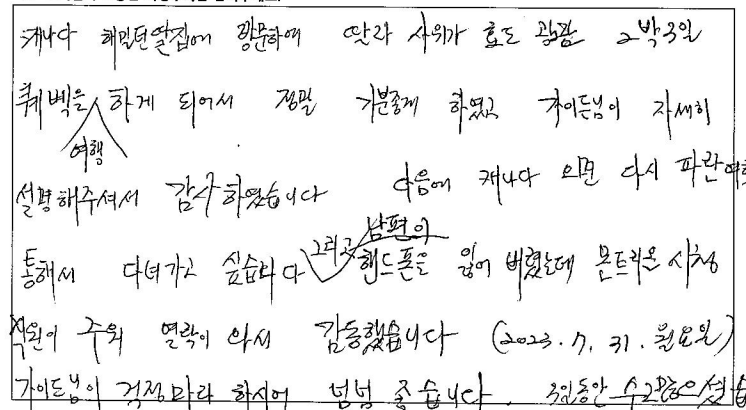 캐나다 해밀턴딸집에 방문하여 딸과 사위가 효도 관광 2박3일
퀘벡을 여행 하게 되어서 정말 기분좋게 하였고 가이드님이 자세히
설명해주셔서 감사하였습니다 다음에 캐나다 오면 다시 파란여행
통해서 다녀가고 싶습니다 그리고 남편이 핸드폰을 잃어 버렸는데 몬트리올 시청
직원이 주워 연락이 와서 감동했습니다 (2023. 7. 31. 월요일)
가이드님이 걱정마라 하시어 넘넘 좋습니다. 3일동안 수고많으셨습